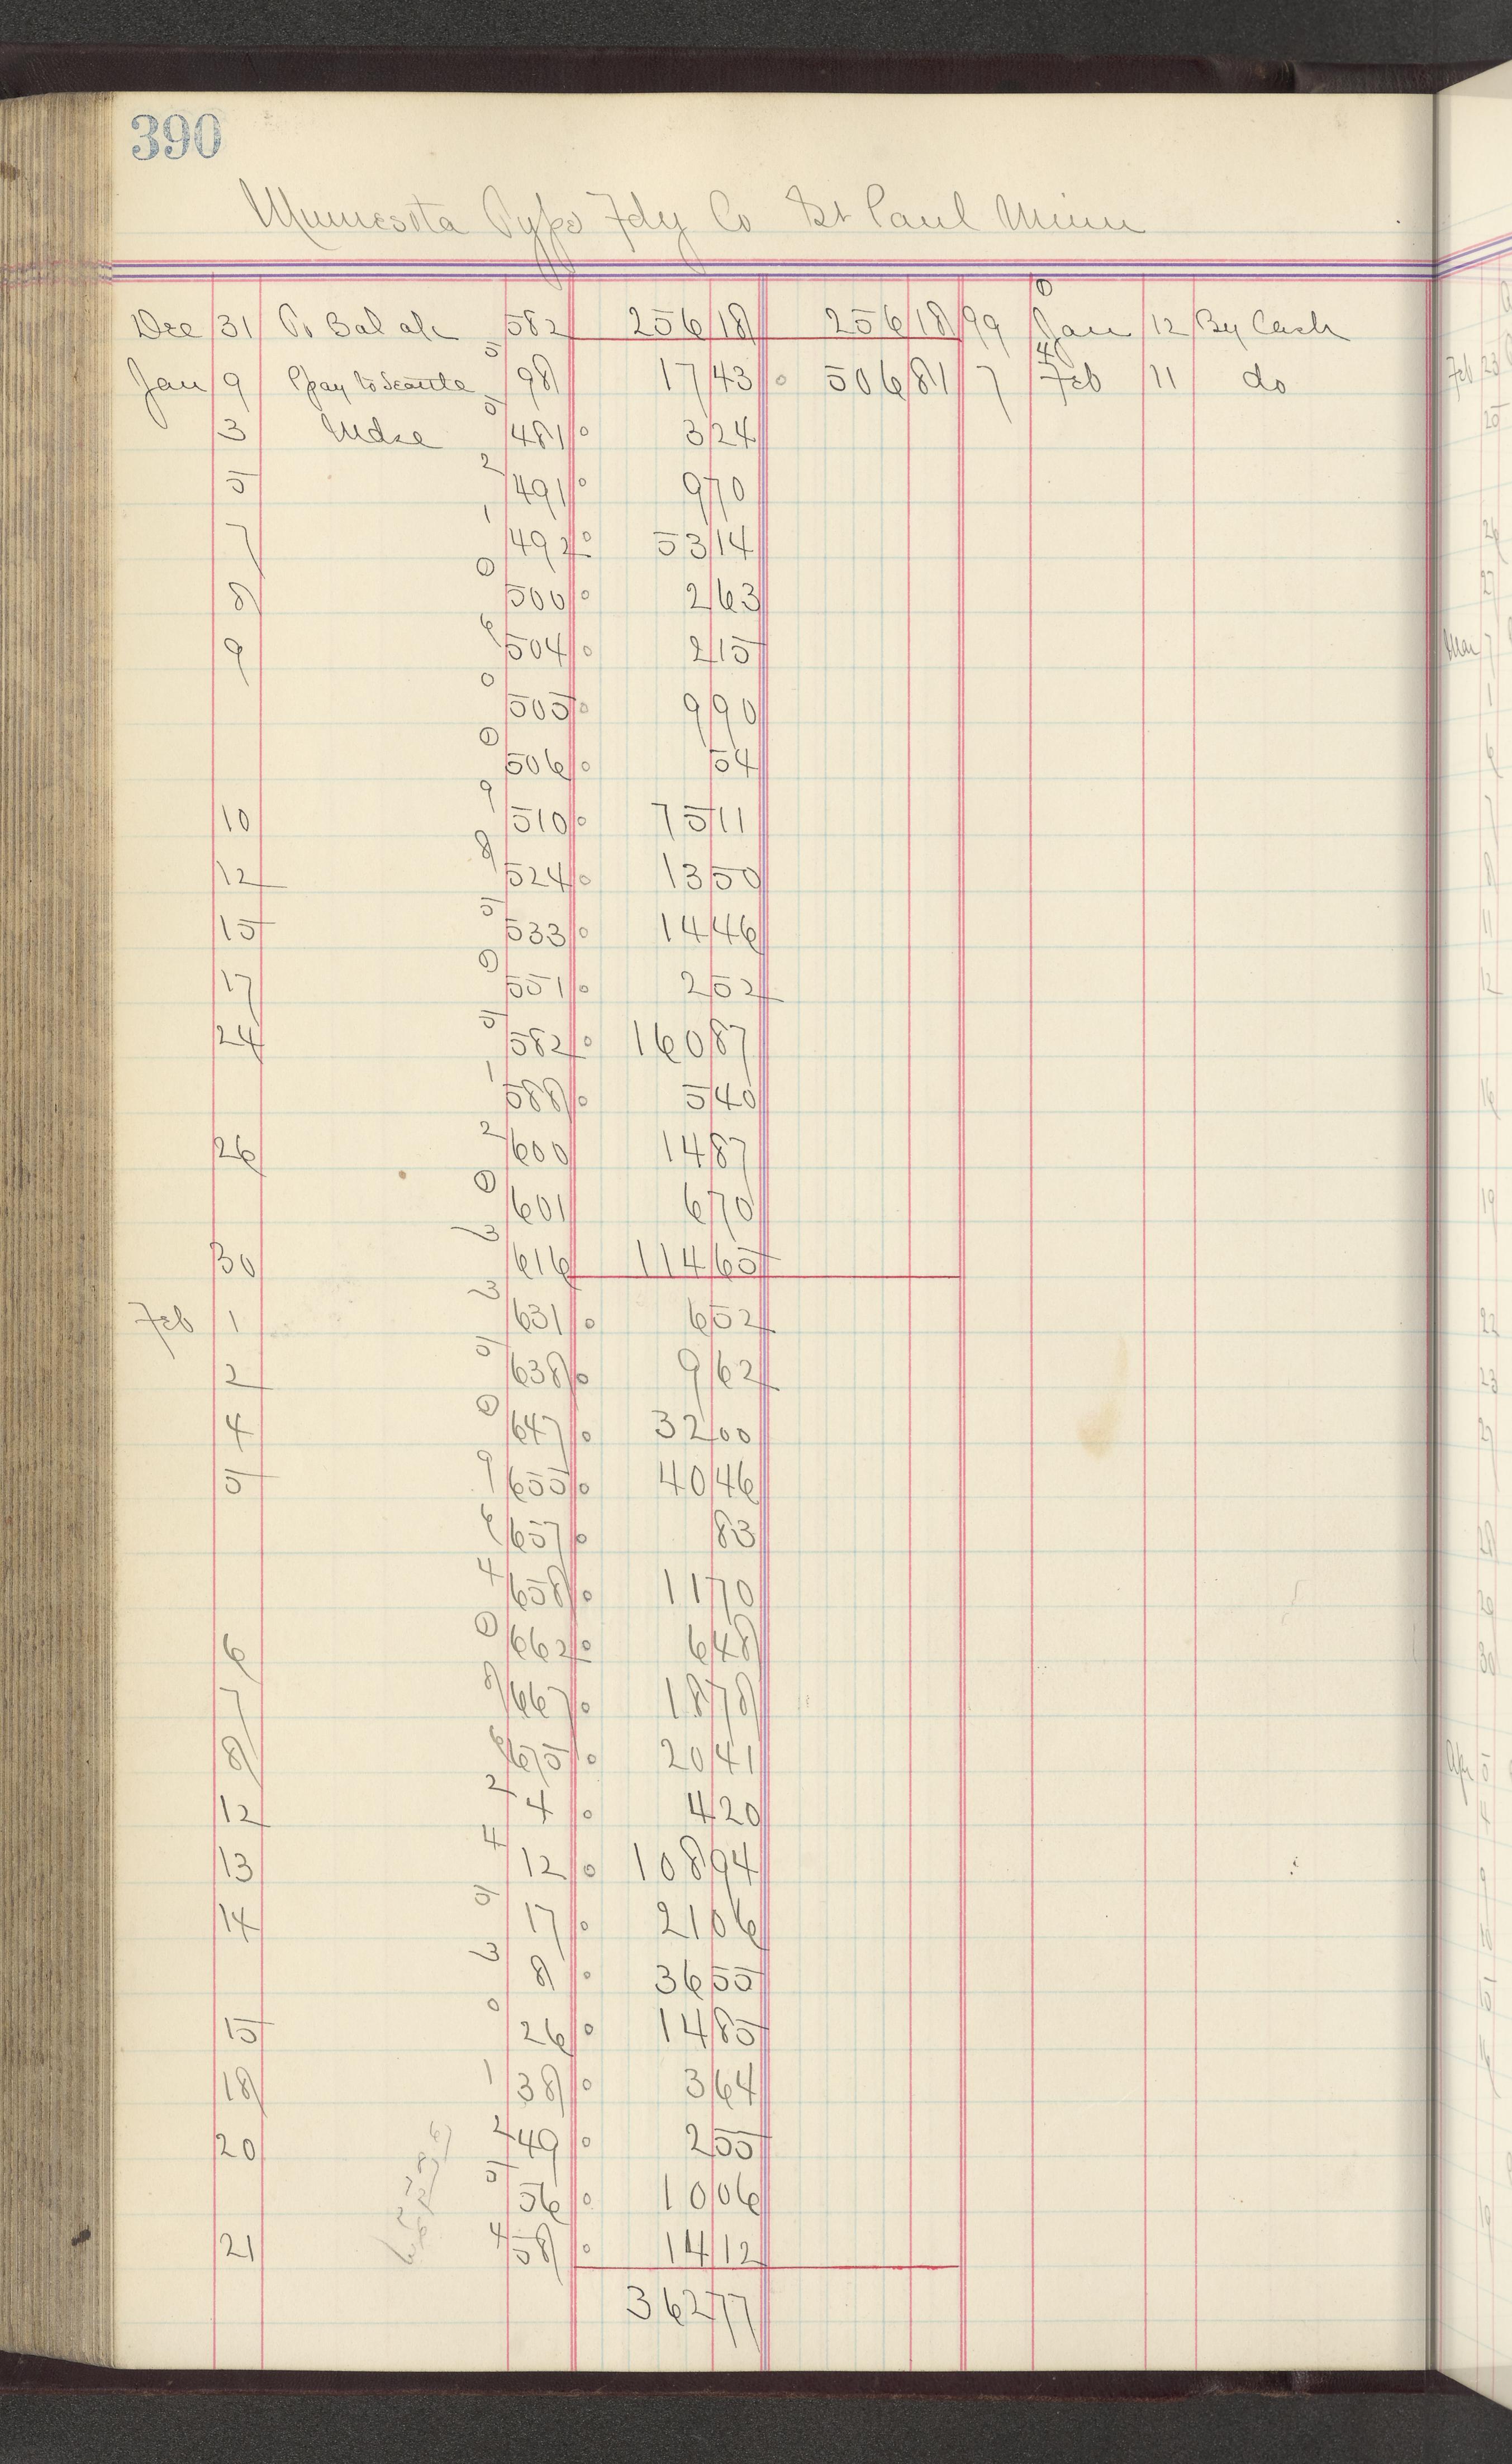 390
Minnesota Type Fdy Co St Paul Minn
Dec 31 To Bal a/c 582 256 18 256 18 99 Jan 12 By Cash
Jan 9 to Seattle 98 17 43 506 81 7 Feb 11 do
3 Mdse 481 3 24
5 491 9 70
7 492 53 14
8 500 2 63
9 504 2 15
505 9 90
506 54
10 510 75 11
12 524 13 50
15 533 14 46
17 551 2 52
24 582 160 87
588 5 40
26 600 14 87
601 6 70
30 616 114 65
Feb 1 631 6 52
2 638 9 62
4 647 32 00
5 655 40 46
657 83
658 11 70
6 662 6 48
7 667 18 78
8 675 20 41
12 4 4 20
13 12 108 94
14 17 21 06
8 36 55
15 26 14 85
18 38 3 64
20 49 2 55
56 10 06
21 58 14 12
362 77